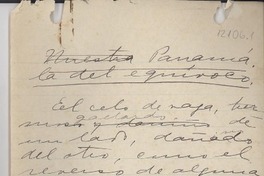 12106.1
Nuestra Panamá,
la del equívoco,
El celo de raza, her
moso gallardo de
un lado, dañado
del otro, como el
reverso de alguna